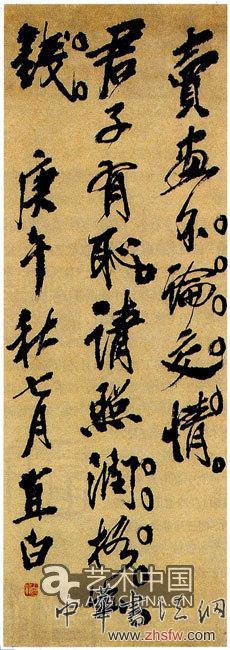 賣畫不論交情
君子有恥請照潤格出
錢庚午秋七月直白
艺术中国
中華書法網
www.zhsfw.com